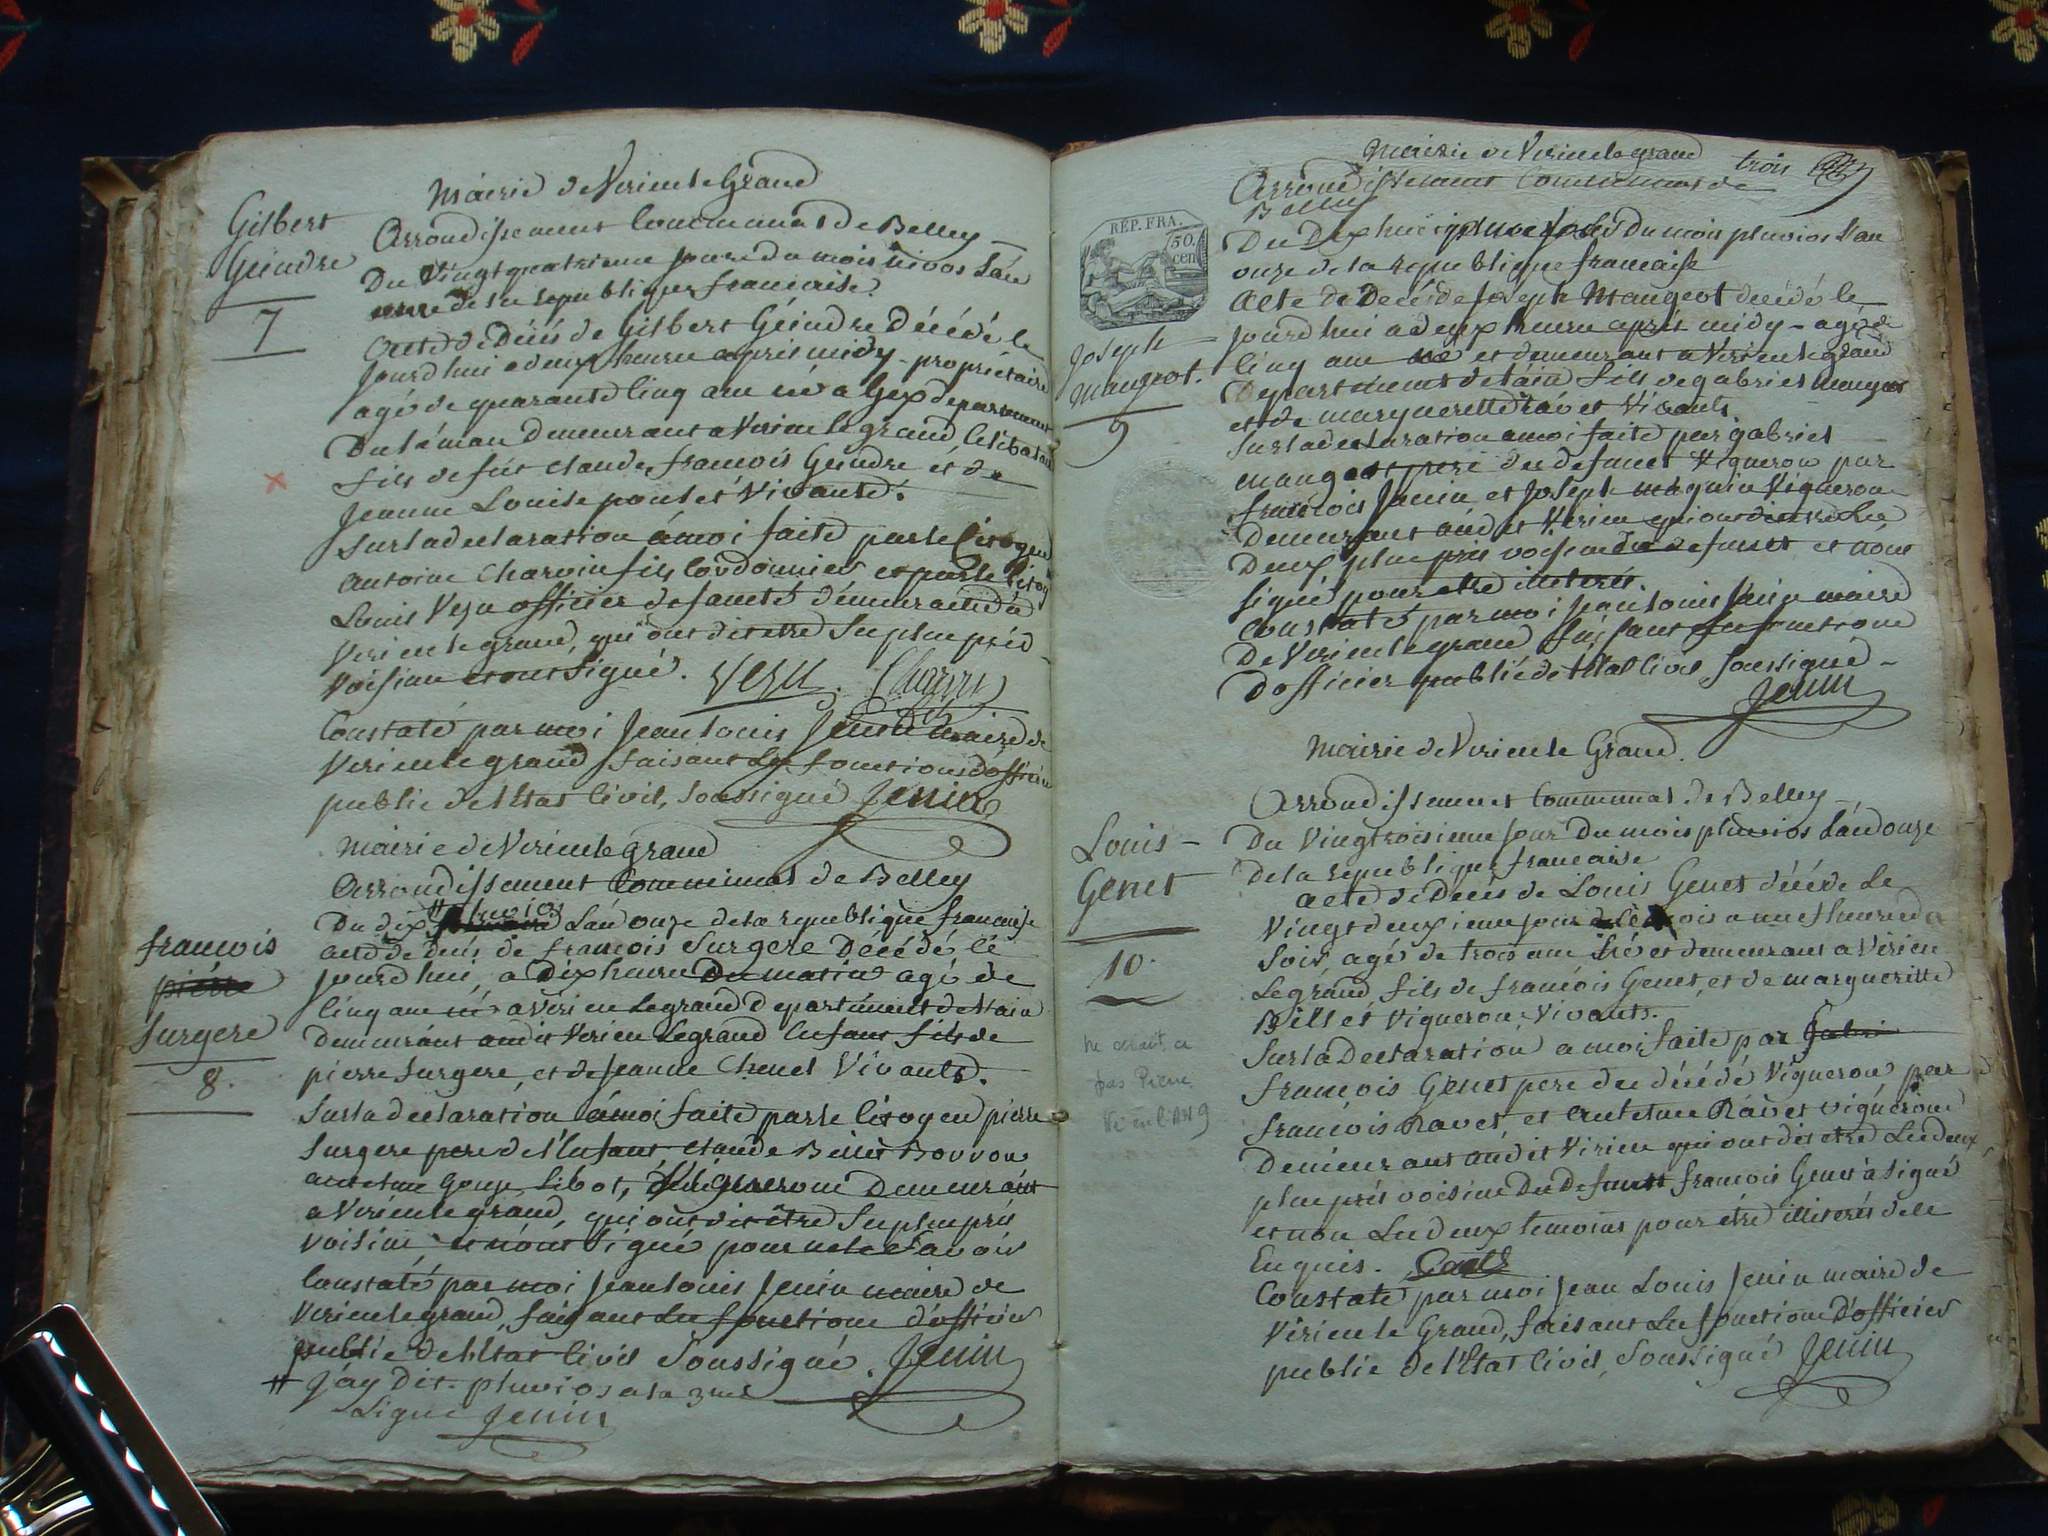 Mairie de Virieu le Grand
Gilbert
Geindre
7
Arrondissement Communal de Belley
Du Vingt quatrieme jour du mois nivos L'an
onze de la republique francaise.
Acte de Décés de Gilbert Geindre Décédé le
jourd'hui a deux heures apres midy - propriétaire
agé de quarante cinq ans né a Gex departement
Du Léman Demeurant a Virieu le grand, Célibataire
fils de fût Claude françois Geindre et de
Jeanne Louise poulet Vivante.
Sur la declaration à moi faite par le Citoyen
Antoine Charvin fils Cordonnier et par le Citoy
Louis Vezu officier de santé demeurants a
Virieu le grand, qui ont dit etre les plus près
Voisins et ont Signé. Vezu. Charvin
Constaté par moi Jean Louis Jenin maire de
Virieu le grand faisant les fonctions d'officier
public de l'Etat Civil, Soussigné Jenin
Mairie de Virieu le grand
Arrondissement Communal de Belley
françois
pierre
Surgere
8.
Du dix # pluvios L'an onze de la republique francaise
acte de Decés de françois Surgere Décédé le
jourd'hui, a Dix heures Du matin agé de
cinq ans né a Virieu Legrand Departement de l'ain
Demeurant audit Virieu Legrand Enfant fils de
pierre Surgere, et de Jeanne Chenel Vivants.
Sur la declaration à moi faite par le Citoyen pierre
Surgere pere de l'Enfant Claude Benit Bouvon
antelme Gouje Libot, Vignerons Demeurant
a Virieu le grand, qui ont dit être les plus près
Voisins, et n'ont Signé pour ne le Savoir
Constaté par moi Jean Louis Jenin maire de
Virieu le grand, faisant les fonctions d'officier
public de l'Etat Civil Soussigné. Jenin
# J'ay Dit pluvios a la 3me
Ligne Jenin
Mairie de Virieu le grand
trois
Arrondissement Communal de
Belley
RÉP. FRA.
50.
cen
Joseph
Mangeot.
9
Du Dix huit Du mois pluvios L'an
onze de la republique francaise
Acte de Décés de Joséph Mangeot decédé le
jourd'hui a deux heures après midy - agé de
Cinq ans né et demeurant a Virieu le grand
Departement de l'ain fils de gabriel mangeot
et de marguerette Ravet Vivants.
Sur la declaration a moi faite par gabriel
mangeot pere du defunct Vigneron par
françois Janin et Joseph maguin Vigneron
Demeurant audit Virieu qui ont dit etre les
Deux plus près voisins du defunct et n'ont
signé pour etre illiterés.
Constaté par moi Jean Louis Jenin maire
De Virieu le grand faisant les fonctions
D'officier public de l'Etat Civil, Soussigné -
Jenin
Mairie de Virieu le Grand.
Arrondissement Communal de Belley
Louis
Genet
10.
Du Vingtroisieme jour Du mois pluvios L'an onze
De la republique francaise
acte de Decés de Louis Genet décédé Le
Vingt deuxieme jour de ce mois a une heure du
Soir, agé de trois ans Né et demeurant a Virieu
Legrand, fils de françois Genet, et de margueritte
Billiet Vigneron, Vivants.
Sur la Declaration, a moi faite par Gabri
françois Genet pere du décédé Vigneron par
françois Ravet, et antelme Ravet vignerons
Demeurant audit Virieu qui ont dit etre Les deux
plus près voisins Du Defunct françois Genet a Signé
et non Les deux temoins pour étre illiterés de ce
Enquis.
Constaté par moi Jean Louis Jenin maire de
Virieu le Grand, faisant Les fonctions D'officier
public de l'Etat Civil, Soussigné Jenin
ne serait ce
pas Pierre
Né en l'AN 9